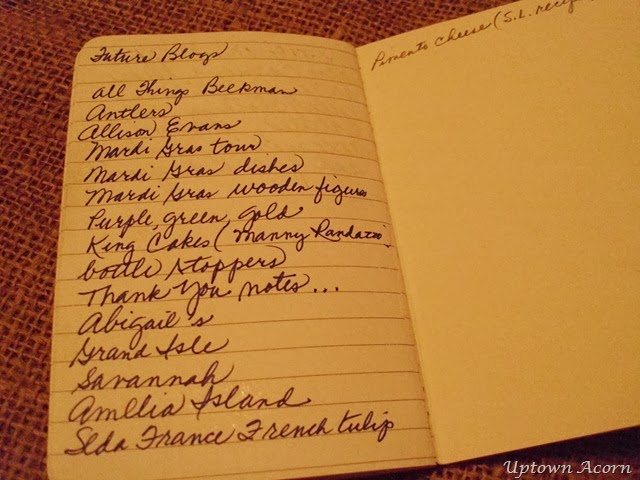 Future Blogs
All Things Beekman
Antlers
Allison Evans
Mardi Gras tour
Mardi Gras dishes
Mardi Gras wooden figures
Purple, green, gold
King Cakes (Manny Randazzo
bottle stoppers
Thank You notes...
Abigail's
Grand Isle
Savannah
Amelia Island
Seda France French tulip
Pimento cheese (S.L.
Uptown Acorn